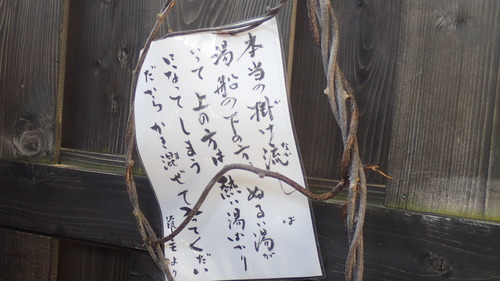 本当の掛け流しは
湯船の下の方 ぬるい湯が
って 上の方は 熱い湯ばかり
になってしまう
だから かき混ぜて 入ってください
店主より